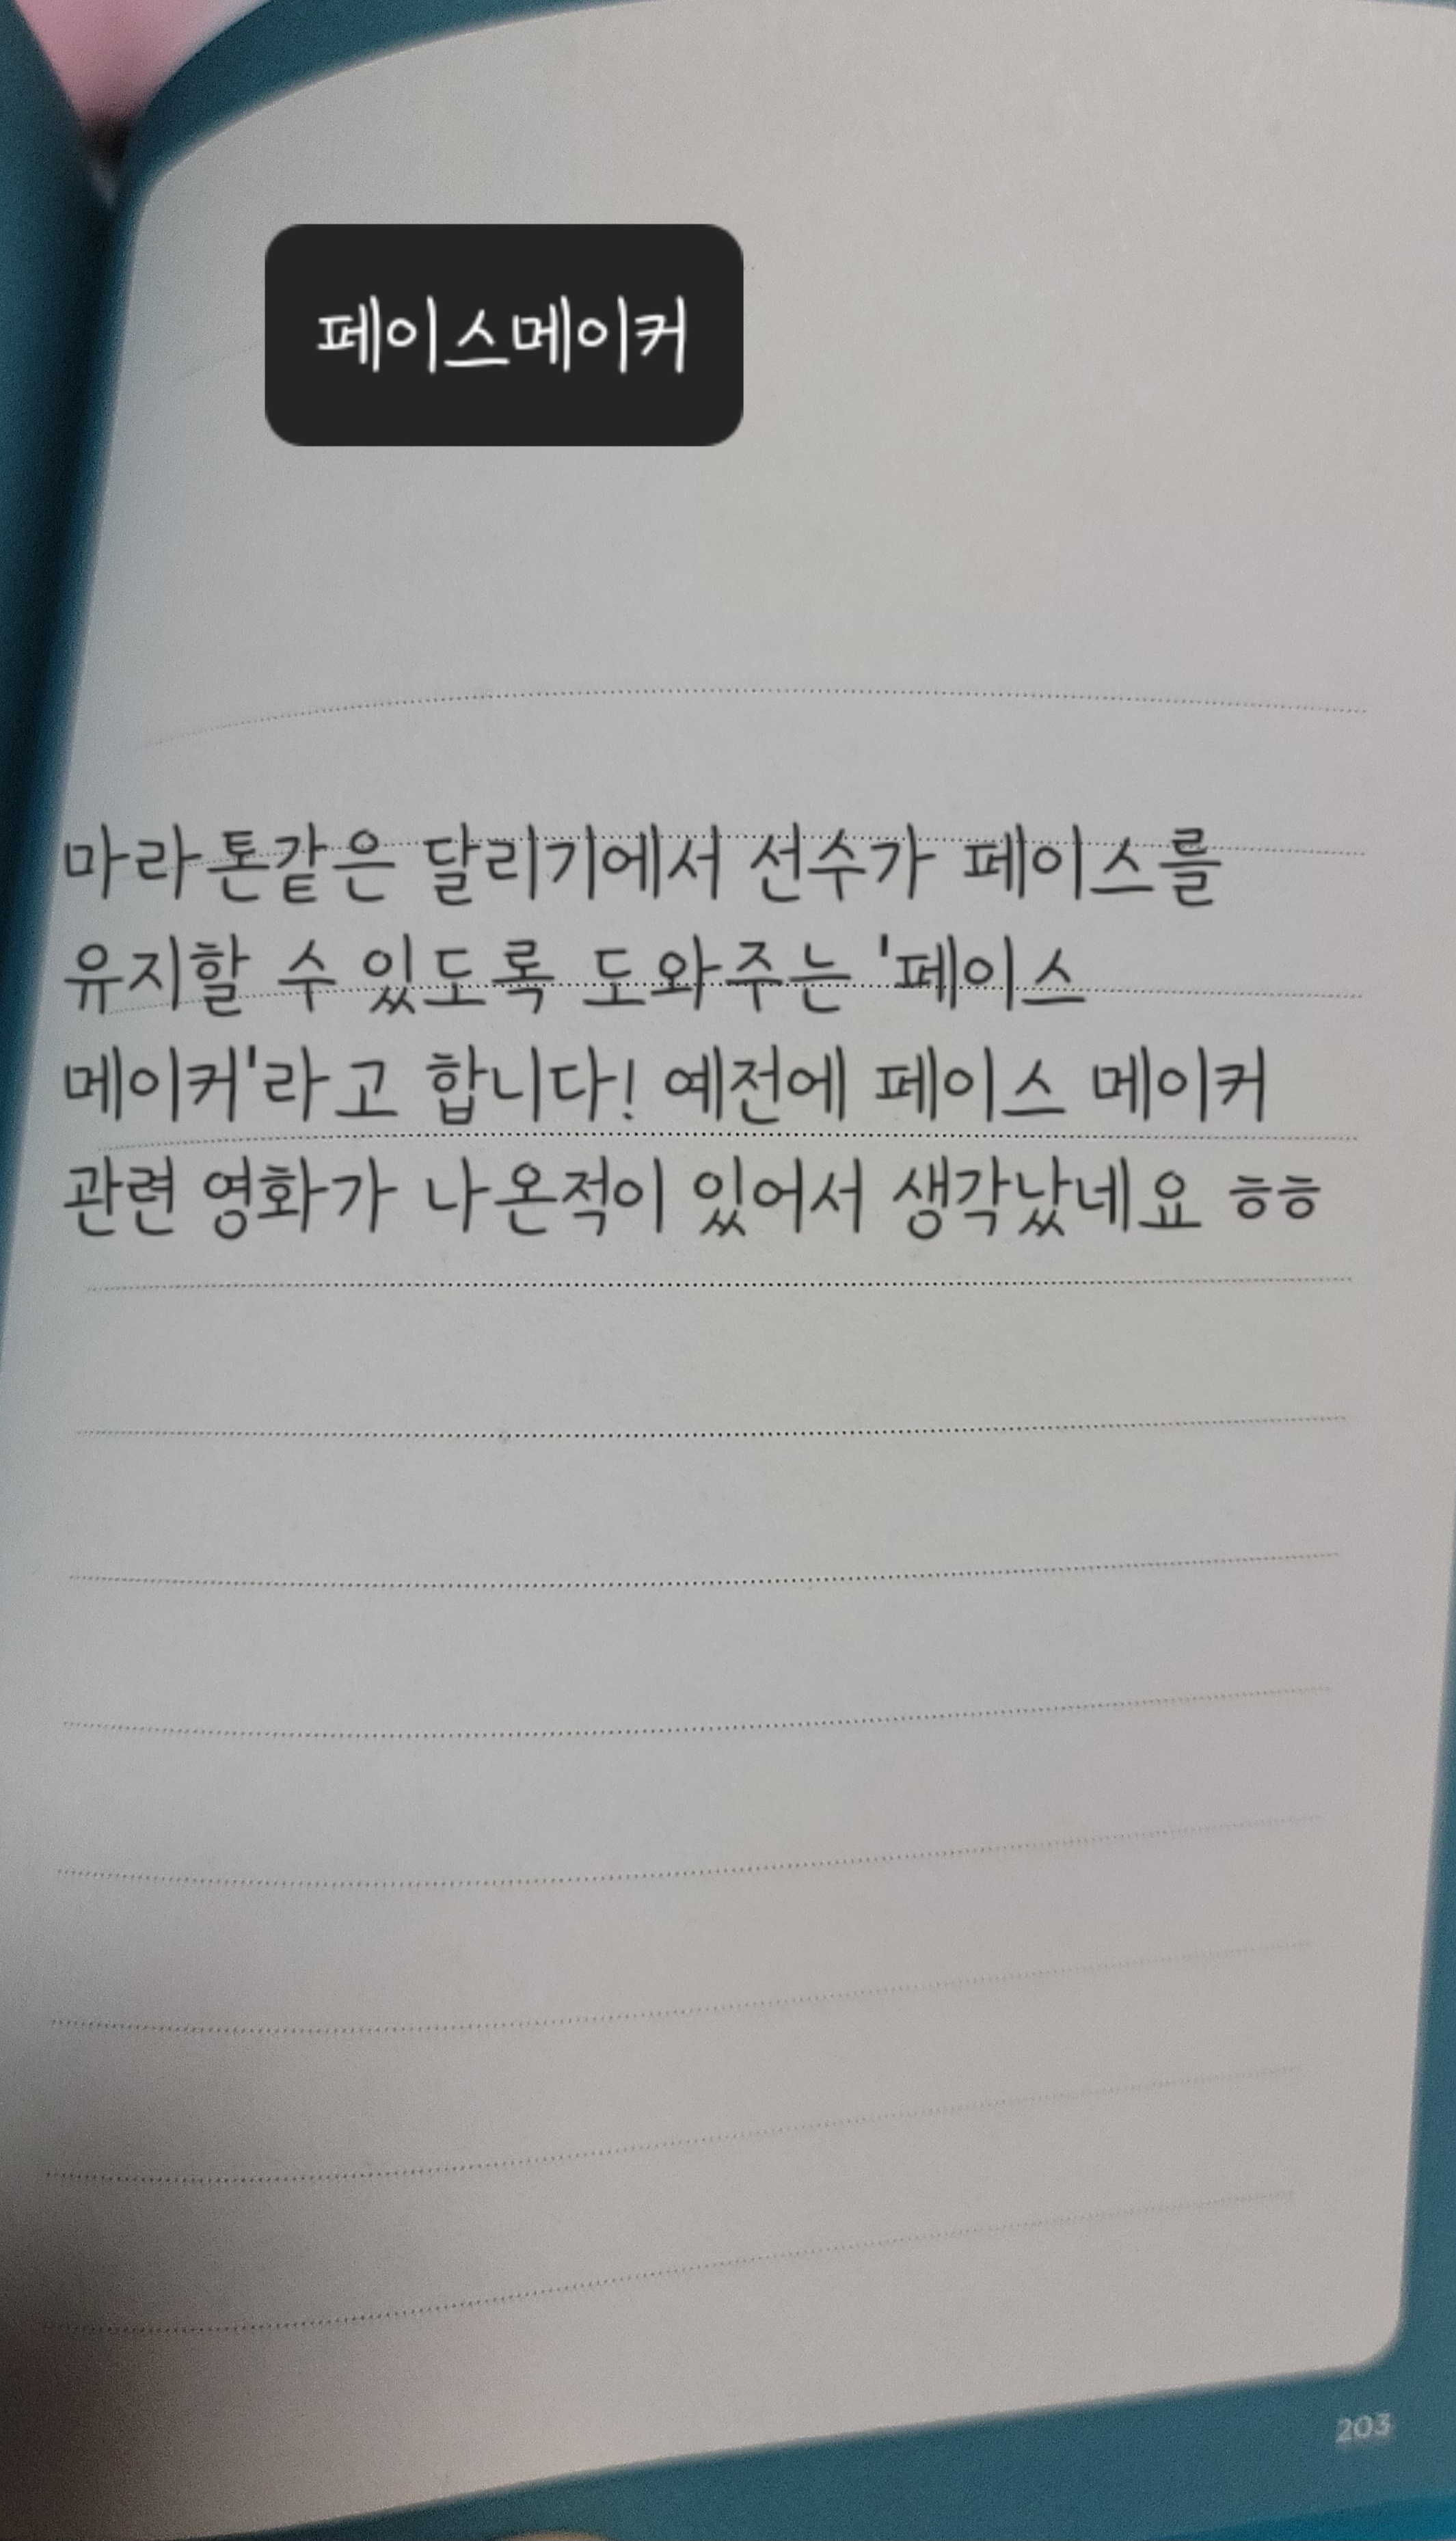 페이스메이커
마라톤같은 달리기에서 선수가 페이스를
유지할 수 있도록 도와주는 '페이스
메이커'라고 합니다! 예전에 페이스 메이커
관련 영화가 나온적이 있어서 생각났네요 ㅎㅎ
203